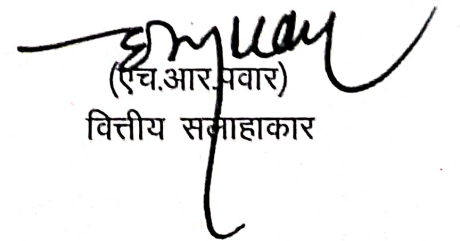 (एच.आर.पवार)
वित्तीय सलाहाकार